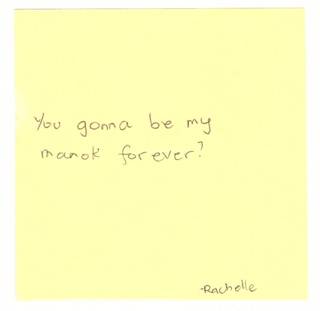 You gonna be my
manok forever?
-Rachelle